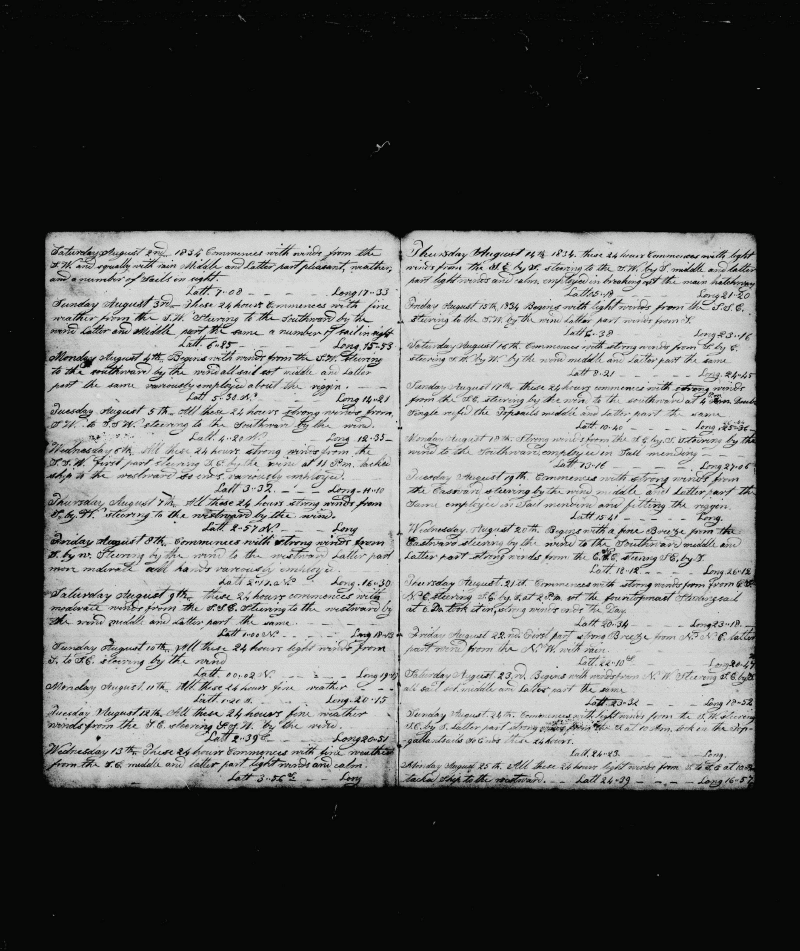 Saturday August 2nd 1834 Commences with winds from the
S.W. and squally with rain Midale and Latter part pleasant, weather,
and a number of Sails on sight
Latt 7-08 - - - - Long 17-33
Sunday August 3rd These 24 hours Commences with fine
weather from the S.W. Steering to the Southward by the
wind Latter and Middle part the same a number of sail in sight
Latt 6-25 - - - - Long. 15-53
Monday August 4th Begins with winds from the S.W. Steering
to the southward by the wind all sail set middle and latter
part the same variously employed about the riggin.
Latt 5-30 N. - - - Long 14-21
Tuesday August 5th. All these 24 hours strong winds from
S.W. to S.S.W. steering to the Southward by the wind.
Latt. 4-20 N. - - - Long 12-33
Wednesday 6th. All these 24 hours strong winds from the
S.S.W. first part steering S.E. by the wind at 11 P.m. tacked
ship to the westward variously employed.
Latt 3-32. - - - Long-11-10
Thursday August 7th. All these 24 hours strong winds from
S. by W. steering to the westward by the wind.
Latt 2-57 N. - - - Long
Friday August 8th. Commences with strong winds from
S. by W. Steering by the wind to the westward Latter part
more moderate all hands variously employd.
Latt - - - Long. 16-30
Saturday August 9th these 24 hours commences with
moderate winds from the S.S.E. Steering to the westward by
the wind middle and Latter part the same.
Latt 1-00 N. - - - Long 18-
Sunday August 10th. All these 24 hours light winds from
S. to S.E. steering by the wind
Latt. 00-02 N. - - - Long 19-
Monday August. 11th. All these 24 hours fine weather
Latt. - - - Long. 20-15
Tuesday August 12th. All these 24 hours fine weather
winds from the S.E. steering S.W. by the wind.
Latt 2-39 S. - - - Long 20-51
Wednesday 13th These 24 hours Commences with fine weather
from the S.E. middle and latter part light winds and calm.
Latt 3-56 S. - - - Long
Thursday August 14th 1834. these 24 hours Commences with light
winds from the S.E. by S. steering to the S.W. by S. middle and latter
part light winds and calm, employed in breaking out the main hatchway
Latt 5-18 - - - - Long 21-20
Friday August 15th, 1834 Begins with light winds from the S.S.E.
steering to the S.W. by the wind latter part winds from S.
Latt 6-38 Long 23-16
Saturday August 16th Commences with strong winds from S. by E.
steering S.W. by W. by the wind middle and latter part the same
Latt 8-21 - - - - Long. 24-45
Sunday August 17th these 24 hours commences with strong winds
from the S.E. steering by the wind to the southward at 4 P.m. Double
single refd the Topsails middle and latter part the same
Latt 10-40 - - - Long. 25-36
Monday August 18th Strong winds from the S.E. by S. Steering by the
wind to the Southward, employed in Sail mending
Latt 13-16 - - - - Long 27-06
Tuesday August 19th. Commences with strong winds from
the Eastward steering by the wind middle and Latter part the
Same employed in Sail mending and fitting the riggin.
Latt 15-41 - - - Long.
Wednesday, August 20th Begins with a fine Breeze from the
Eastward steering by the wind to the Southward middle and
Latter part strong winds from the E.S.E. steering S.E. by S.
Latt 18-12 - - - Long 26-12
Thursday August 21st. Commences with strong winds from
N.E. steering S.E. by S. at 2 P.m. set the fourtopmast Studingsail
at 6 Do. took it in, strong winds ends the Day
Latt 20-34 Long 23-18
Friday August 22nd. First part strong Breeze from N. N.E. latter
part wind from the N.W. with rain.
Latt. 22-10 - - - Long 20-47
Saturday August 23rd. Begins with winds from N.W. Steering S.E. by
all sail set, middle and latter part the same
Latt 23-32 - - - Long 18-52
Sunday August 24th. Commences with light winds from the S.W. steering
S.E. by S. Latter part strong winds from the S. at 10 A.m. took in the Top-
gallantsails so Ends these 24 hours.
Latt 24-23. - - - Long.
Monday August 25th. All these 24 hours light winds from S. to S.E. at 10
tacked Ship to the westward. Latt 24-39 - - - Long 16-57